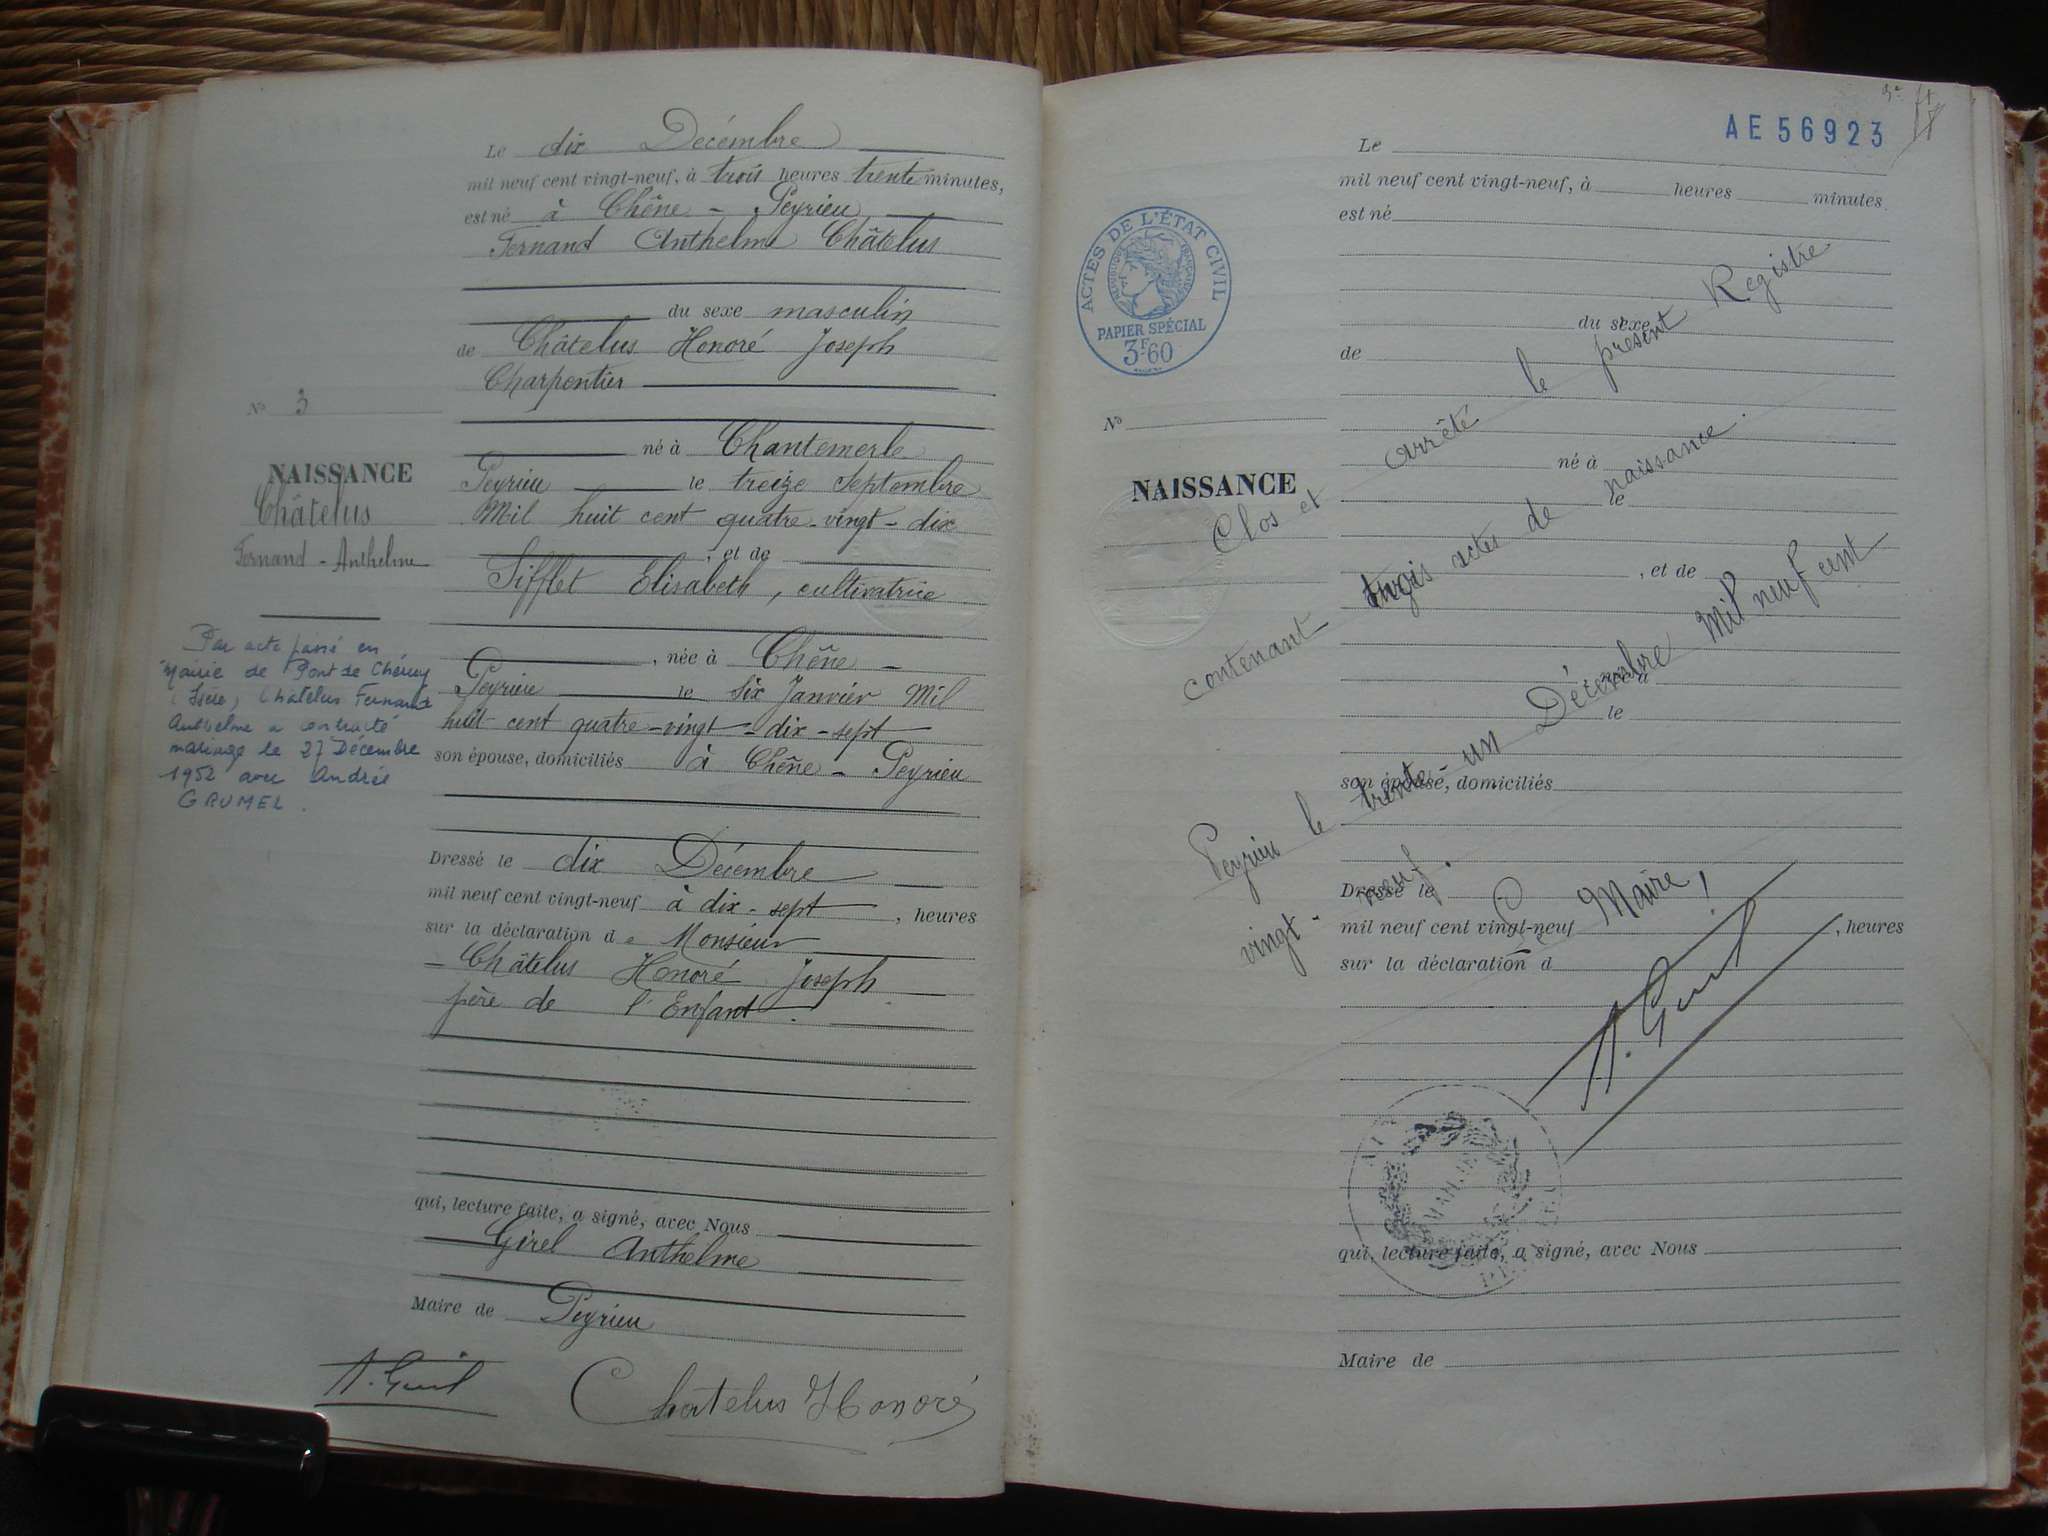 Le dix Décembre
mil neuf cent vingt-neuf, à trois heures trente minutes,
est né à Chêne - Peyrieu
Fernand Anthelme Châtelus
du sexe masculin
de Châtelus Honoré Joseph
Charpentier
No 3
né à Chantemerle
NAISSANCE
Peyrieu le treize Septembre
Châtelus
Mil huit cent quatre-vingt-dix
Fernand - Anthelme
, et de
Sifflet Elisabeth, cultivatrice
Par acte passé en
Mairie de Pont de Chéruy
(Isère, Châtelus Fernand
Anthelme a contracté
mariage le 27 Décembre
1952 avec Andrée
GRUMEL.
, née à Chêne -
Peyrieu le Six Janvier Mil
huit-cent quatre-vingt-dix-sept
son épouse, domiciliés à Chêne - Peyrieu
Dressé le dix Décembre
mil neuf cent vingt-neuf à dix-sept, heures
sur la déclaration de Monsieur
Châtelus Honoré Joseph
père de l'Enfant.
qui, lecture faite, a signé, avec Nous
Girel Anthelme
Maire de Peyrieu
Chatelus Honoré
AE 56923
Le
mil neuf cent vingt-neuf, à heures minutes
est né
ACTES DE L'ÉTAT CIVIL
RÉPUBLIQUE FRANÇAISE
PAPIER SPÉCIAL
3F.60
du sexe
de
No
né à
NAISSANCE
le
, et de
née à
le
son épouse, domiciliés
Dressé le
mil neuf cent vingt-neuf, heures
sur la déclaration d
qui, lecture faite, a signé, avec Nous
Maire de
Clos et arrêté le présent Registre
contenant trois actes de naissance.
Peyrieu le trente-un Décembre Mil neuf cent
vingt-neuf.
Le Maire,